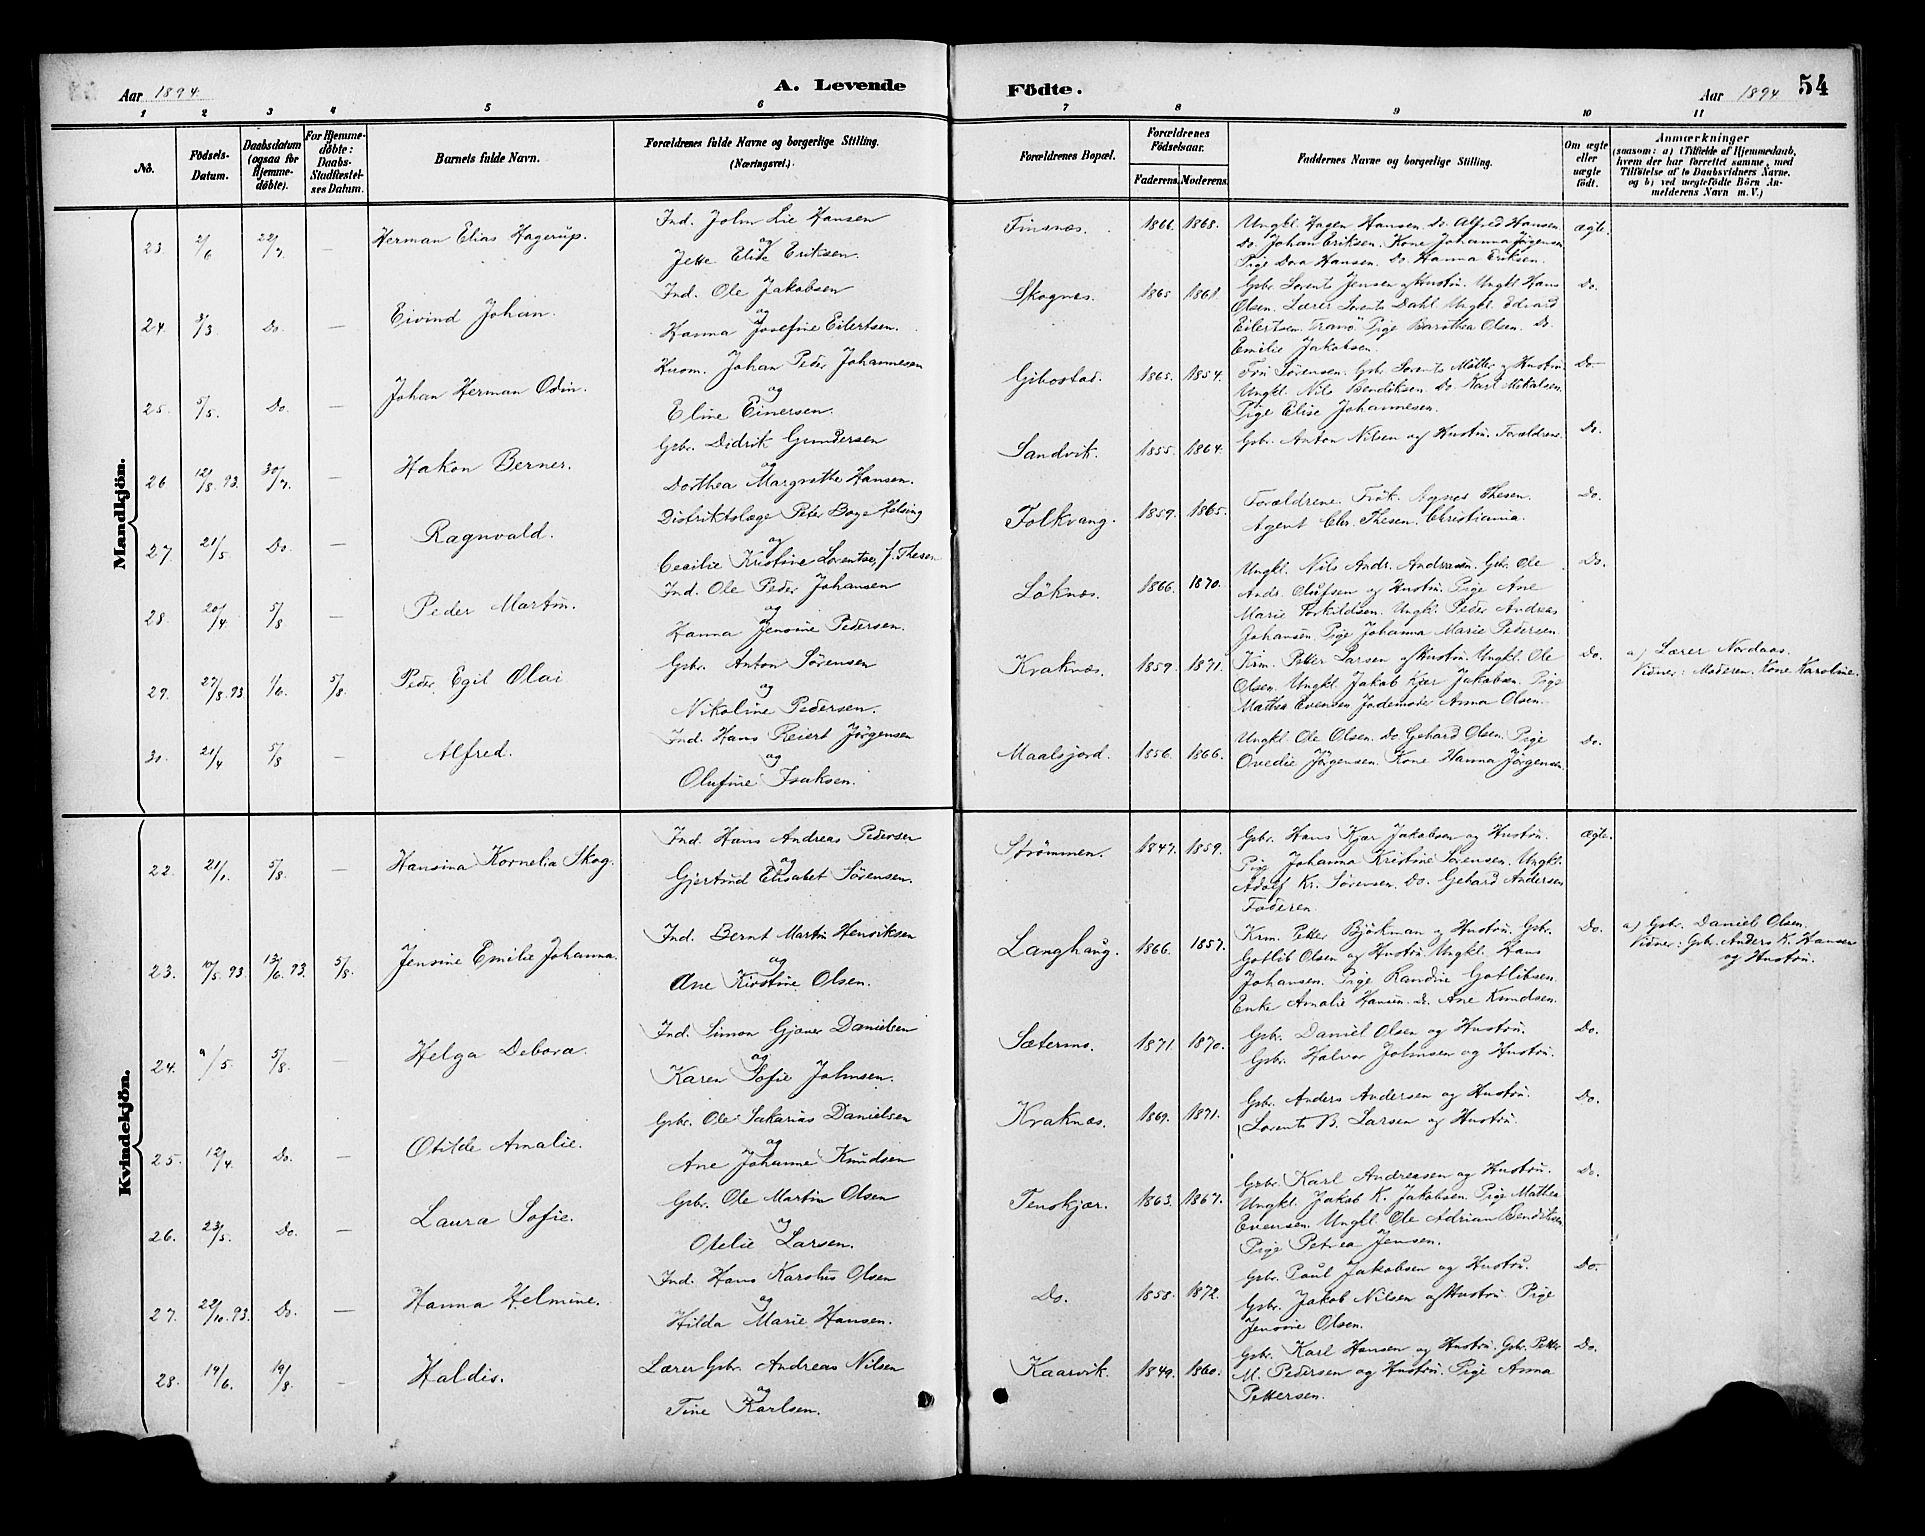 Aar 1894.
A. Levende
Födte.
Aar 1894
54
1 2 3 4 5 6 7 8 9 10 11
No.
Födsels-
Datum.
Daabsdatum
(ogsaa for
Hjemme-
døbte).
For Hjemme-
døbte:
Daabs-
Stadfæstel-
ses Datum.
Barnets fulde Navn.
Forældrenes fulde Navne og borgerlige Stilling.
(Næringsvei.)
Forældrenes Bopæl.
Forældrenes
Födselsaar.
Faderens. Moderens.
Faddernes Navne og borgerlige Stilling.
Om ægte
eller
uægte
födt.
Anmærkninger
(saasom: a) i Tilfælde af Hjemmedaab,
hvem der har forrettet samme, med
Tilföielse af to Daabsvidners Navne.
og b) ved uegtefödte Börn An-
melderens Navn m. V.)
Mandkjön.
23. 2/6 22/7. — Herman Elias Hagerup. Ind. John Lie Hansen
og
Jette Elise Eriksen.
Finsnæs. 1866. 1868. Ungkl. Hagen Hansen. Do. Alfred Hansen.
Do. Johan Eriksen. Kone Johanna Jörgensen
Pige Dora Hansen. Do. Hanna Eriksen.
ægte.
24. 3/3 Do. — Eivind Johan. Ind. Ole Jakobsen
og
Hanna Josefine Eilertsen.
Skognæs. 1865 1861. Gbr. Lorents Jensen og Hustru. Ungkl. Hans
Olsen. Lærer Lorents Dahl. Ungkl. Edvard
Eilertsen. Tranö. Pige Dorothea Olsen. Do.
Emilie Jakobsen.
Do.
25. 5/5. Do. — Johan Herman Odin. Husm. Johan Peder Johannesen
og
Eline Einersen.
Gibostad. 1865. 1854. Fru Sørensen. Gbr. Lorents Møller og Hustru
Ungkl. Nils Bendiksen. Do. Karl Mikalsen.
Pige Elise Johannesen.
Do.
26 12/8. 93. 30/7. — Hakon Berner. Gbr. Didrik Gundersen
og
Dorthea Margrethe Hansen.
Sandvik. 1855. 1864. Gbr. Anton Nilsen og Hustru. Forældrene.
Do.
27. 21/5 Do. — Ragnvald. Distriktslæge Peter Boye Helsing
og
Cecilie Kristine Lorentse, f. Thesen
Folkvang. 1859. 1865. Forældrene. Frøk. Agnes Thesen.
Agent Chr. Thesen. Christiania.
Do.
28. 20/4 5/8 — Peder Martin. Ind. Ole Peder Johansen
og
Hanna Jensine Pedersen.
Löknæs. 1866. 1870. Ungkl. Nils Andr. Andreasen. Gbr. Ole
Andr. Olufsen og Hustru. Pige Ane
Marie Torkildsen. Ungkl. Peder Andreas
Johansen. Pige Johanna Marie Pedersen.
Do.
29. 27/8. 93. 1/6. 5/8. Peder Egil Olai Gbr. Anton Sörensen
og
Nikoline Pedersen.
Kraknæs. 1859. 1871. Krm. Petter Larsen og Hustru. Ungkl. Ole
Olsen. Ungkl. Jakob Kjær Jakobsen. Pige
Mathea Evensen Jordemoder Anna Olsen.
Do. a) Lærer Nordaas.
Vidner: Moderen. Kone Karoline.
30. 21/4 5/8 — Alfred. Ind. Hans Reiert Jörgensen
og
Olufine Isaksen.
Maalsjord. 1856. 1866. Ungkl. Ole Olsen. Do. Gehard Olsen. Pige
Ovedie Jörgensen. Kone Hanna Jörgensen.
Do.
Kvindekjön.
22. 21/1. 5/8. — Hansina Kornelia Skog. Ind. Hans Andreas Pedersen
og
Gjertrud Elisabet Sörensen.
Strömmen. 1847. 1859. Gbr. Hans Kjær Jakobsen og Hustru.
Pige Johanna Kristine Sörensen. Ungkl.
Adolf Kr. Sörensen. Do. Gehard Andersen
Faderen.
ægte.
23. 10/5. 93 13/6. 93. 5/8. Jensine Emilie Johanna. Ind. Bernt Martin Henriksen
og
Ane Kirstine Olsen.
Langhaug. 1866. 1857. Krm. Petter Björkman og Hustru. Gbr.
Gotlib Olsen og Hustru. Ungkl. Hans
Johansen. Pige Randine Gotlibsen.
Enke Amalie Hansen. Do. Ane Knudsen.
Do. a) Gbr. Daniel Olsen.
Vidner: Gbr. Anders K. Hansen
og Hustru.
24. 9/5. 5/8. — Helga Debora. Ind. Simon Gjæver Danielsen
og
Karen Sofie Johnsen.
Sætermo. 1871. 1870. Gbr. Daniel Olsen og Hustru.
Gbr. Halvor Johnsen og Hustru.
Do.
25. 12/4. Do. — Otilde Amalie. Gbr. Ole Sakarias Danielsen
og
Ane Johanne Knudsen
Kraknæs. 1869. 1871. Gbr. Anders Andersen og Hustru.
Lorents B. Larsen og Hustru.
Do.
26. 23/5. Do. — Laura Sofie. Gbr. Ole Martin Olsen
og
Otelie Larsen.
Tenskjær. 1863. 1867. Gbr. Karl Andreasen og Hustru.
Ungkl. Jakob K. Jakobsen. Pige Mathea
Evensen. Ungkl. Ole Adrian Bendiksen
Pige Petrea Jensen.
Do.
27. 22/10. 93. Do. — Hanna Helmine. Ind. Hans Karolus Olsen
og
Hilda Marie Hansen.
Do. 1858. 1872. Gbr. Paul Jakobsen og Hustru.
Gbr. Jakob Nilsen og Hustru. Pige
Jensine Olsen.
Do.
28. 19/6. 19/8. — Haldis. Lærer Gbr. Andreas Nilsen
og
Tine Karlsen.
Kaarvik. 1849. 1860. Gbr. Karl Hansen og Hustru. Gbr. Petter
M. Pedersen og Hustru. Pige Anna
Pettersen.
Do.